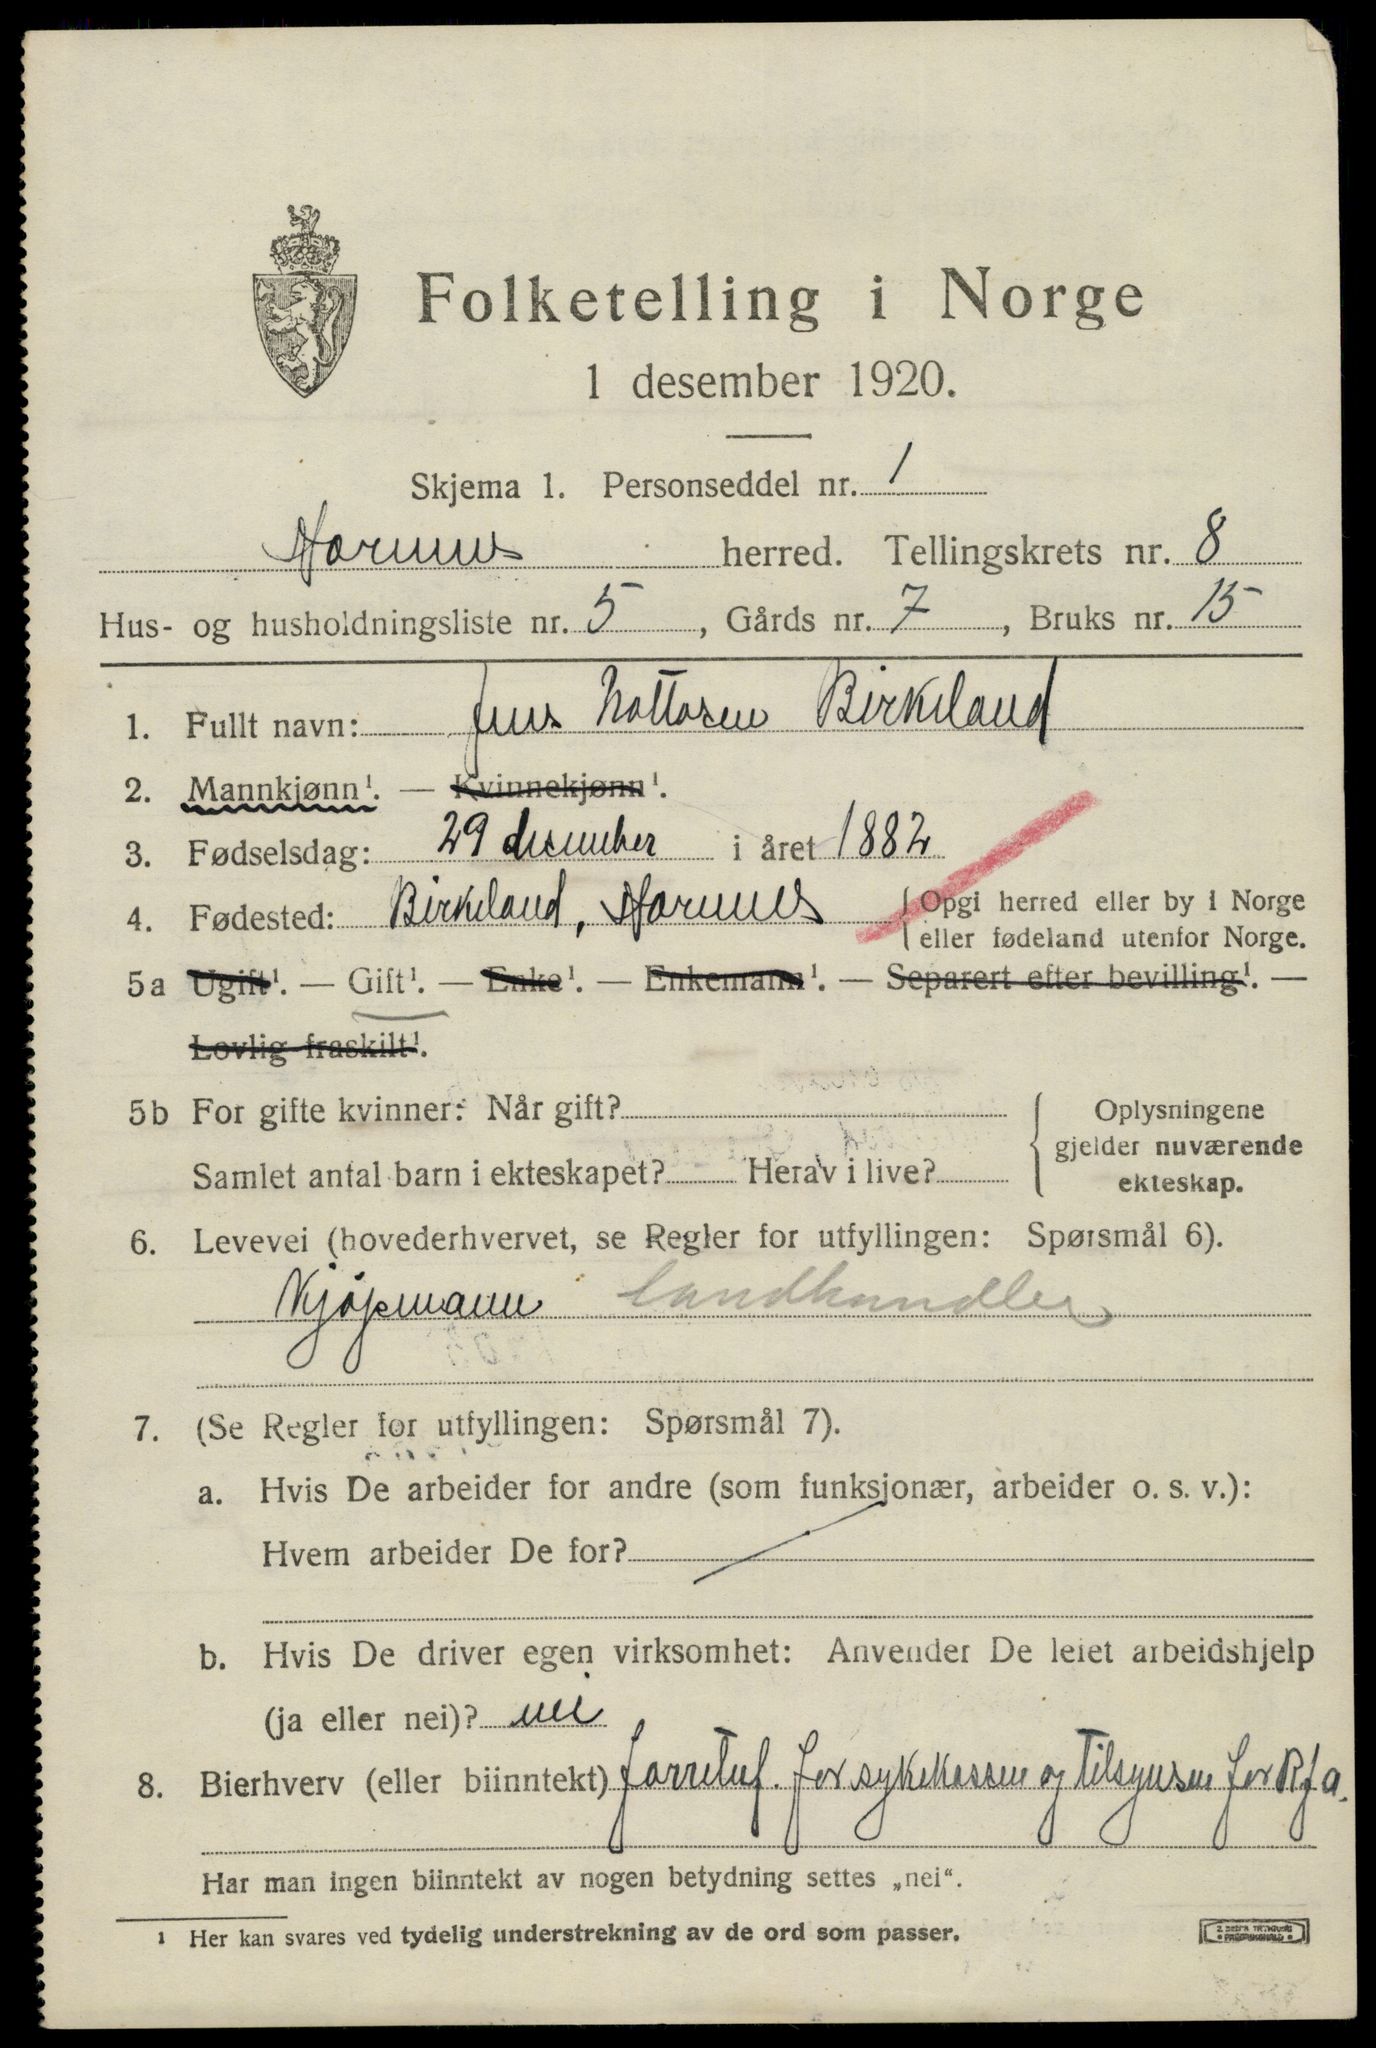 Folketelling i Norge
1 desember 1920.
Skjema 1. Personseddel nr. 1
herred. Tellingskrets nr. 8
Hus- og husholdningsliste nr. 5, Gårds nr. 7, Bruks nr. 15
1. Fullt navn: Jens Birkeland
2. Mannkjønn¹. — Kvinnekjønn¹.
3. Fødselsdag: 29 desember i året 1882
4. Fødested: Birkeland, {Opgi herred eller by i Norge
eller fødeland utenfor Norge.
5a Ugift¹. — Gift¹. — Enke¹. — Enkemann¹. — Separert efter bevilling¹. —
Lovlig fraskilt¹.
5b For gifte kvinner: Når gift?
Samlet antal barn i ekteskapet? Herav i live?
Oplysningene
gjelder nuværende
ekteskap.
6. Levevei (hovederhvervet, se Regler for utfyllingen: Spørsmål 6).
Kjøpmann landhandler
7. (Se Regler for utfyllingen: Spørsmål 7).
a. Hvis De arbeider for andre (som funksjonær, arbeider o. s. v.):
Hvem arbeider De for?
b. Hvis De driver egen virksomhet: Anvender De leiet arbeidshjelp
(ja eller nei)? nei
8. Bierhverv (eller biinntekt) for sykekassen og tilsynsm for Rfa.
Har man ingen biinntekt av nogen betydning settes „nei“.
¹ Her kan svares ved tydelig understrekning av de ord som passer.